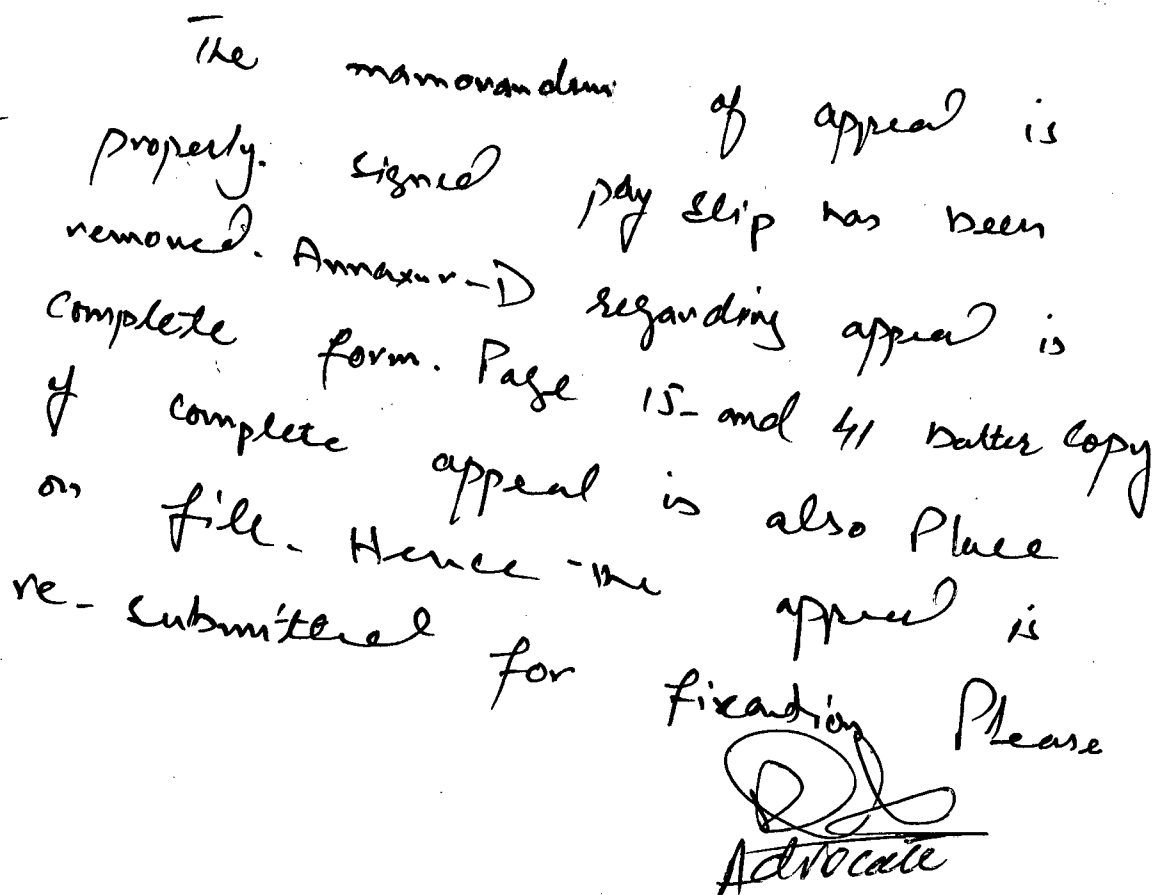 The mamorandum of appeal is
properly. signed pay slip has been
removed. Annaxur-D regarding appeal is
complete form. Page 15- and 41 batter copy
of complete appeal is also Place
on fill. Hence the appeal is
re-submitted for fixandion Please
Advocate